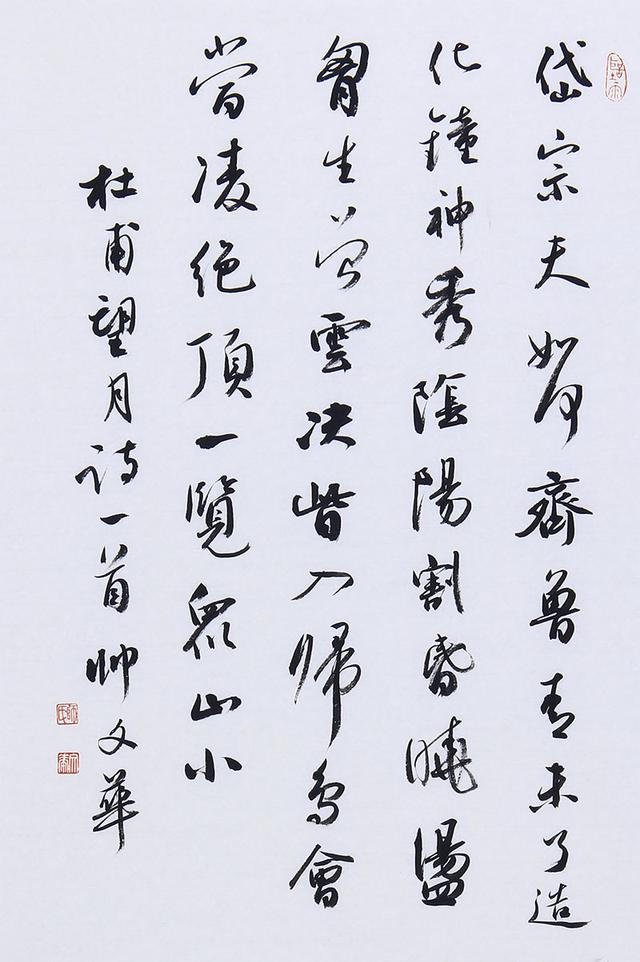 岱宗夫如何齊魯青未了造
化鐘神秀陰陽割昏曉盪
胷生曾雲决眥入歸鳥會
當凌絶頂一覽眾山小
杜甫望月诗一首帅文華